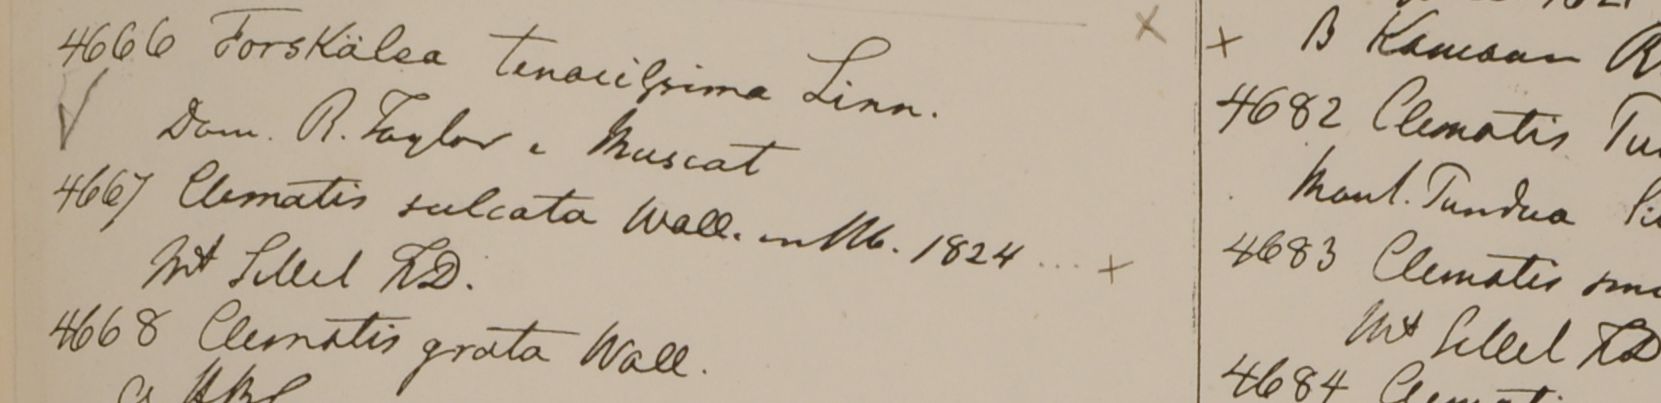 4666 Forskälea tenacissima Linn.
Dom. R. Taylor e Muscat
4667 Clematis sulcata Wall. in 1824 ... +
Mt Sillet F.D.
4668 Clematis grata Wall.
HBC
B Kamaon R
4682 Clematis
Mont. Tundua
4683 Clematis
Mt Sillet FD
4684